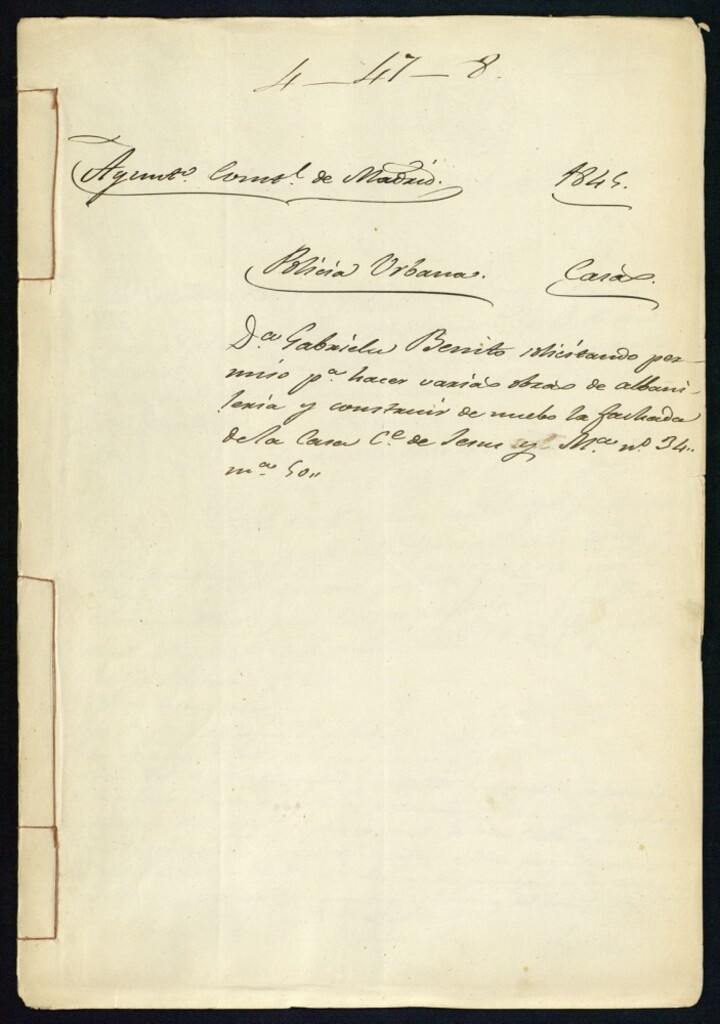 4—47—8.
Ayuntº. Const.l de Madrid. 1845.
Policia Urbana. Casas.
D.ª Gabriela Benito solicitando per-
miso pª hacer varias obras de albani-
leria y construir de nuebo la fachada
de la Casa C.e de Jesus y M.ª nº 34..
m.ª 50..